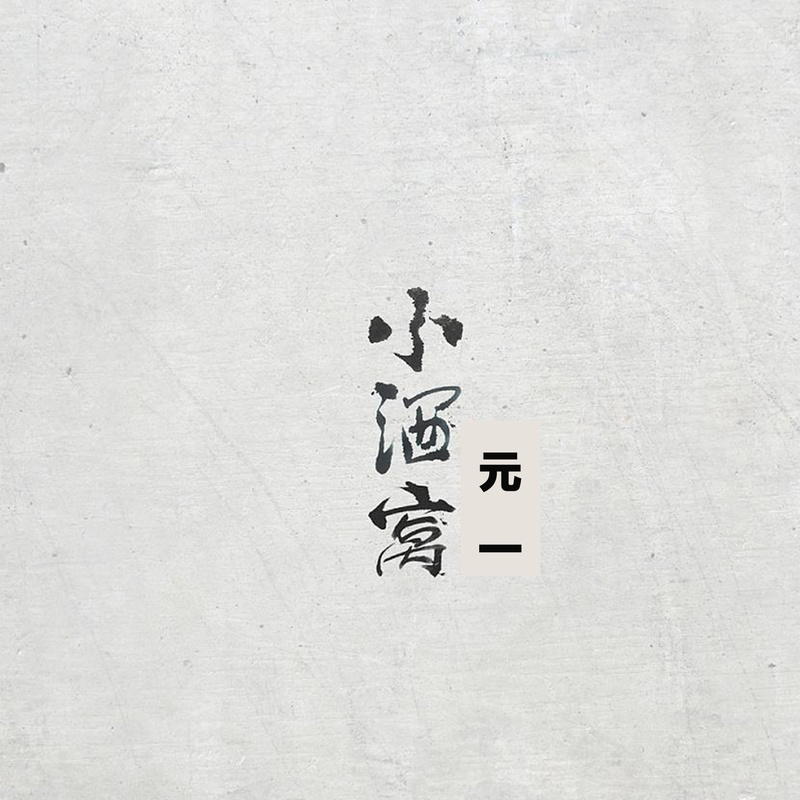 小酒窝
元一